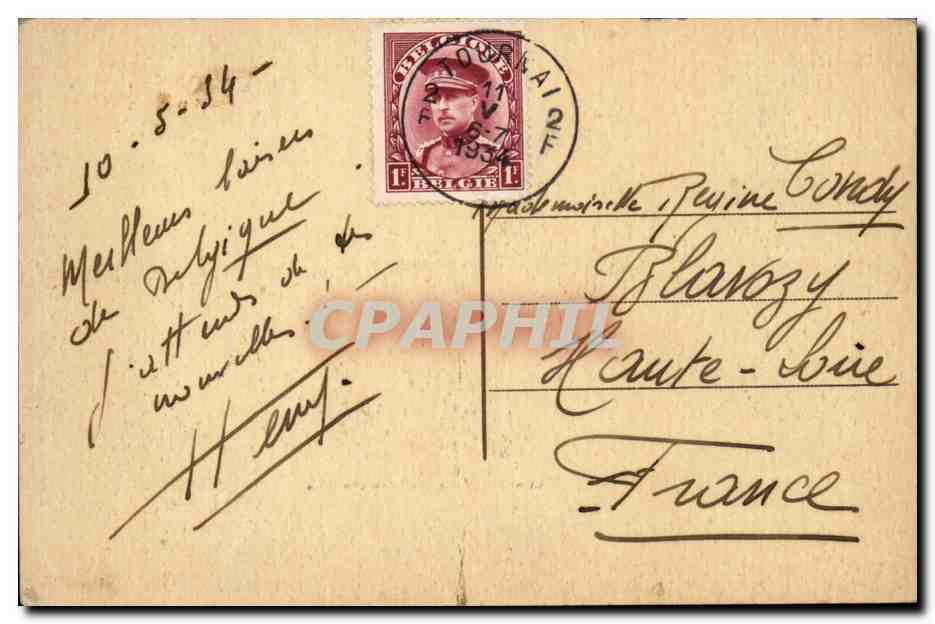 10.5.34-
Meilleurs baisers
de Belgique.
J'attends de tes
nouvelles.
Henry.
BELGIQUE
1F 1F
BELGIE
TOURNAI
2 11 2
F V F
6-7
1934
Mademoiselle Regine Condy
Blavozy
Haute-Loire
France
CPAPHIL